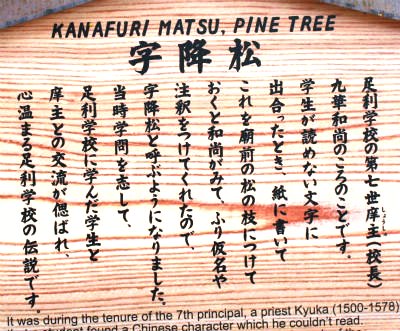 KANAFURI MATSU, PINE TREE
字降松
足利学校の第七世庠主(校長)
しょうしゅ
九華和尚のころのことです。
学生が読めない文字に
出合ったとき、紙に書いて
これを廟前の松の枝につけて
おくと和尚がみて、ふり仮名や
注釈をつけてくれたので、
字降松と呼ぶようになりました。
当時学問を志して、
足利学校に学んだ学生と
庠主との交流が偲ばれ、
心温まる足利学校の伝説です。
It was during the tenure of the 7th principal, a priest Kyuka (1500-1578)
student found a Chinese character which he couldn't read.